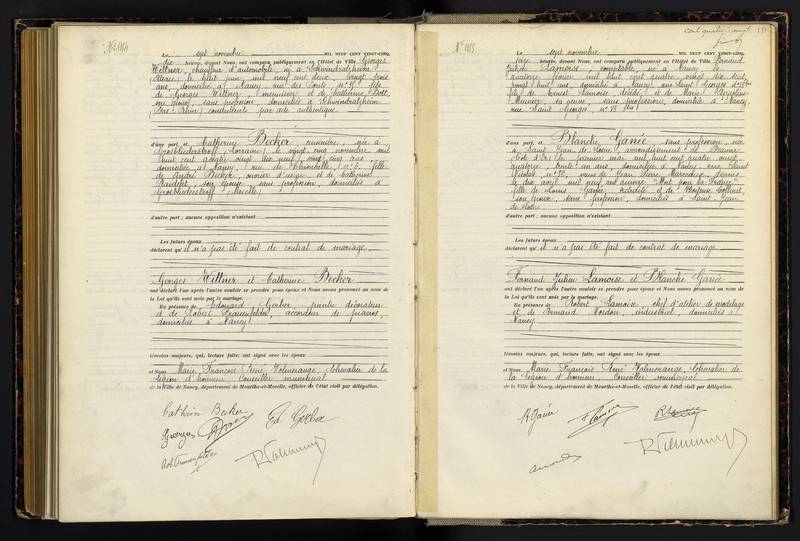 Le sept novembre MIL NEUF CENT VINGT-CINQ,
dix heures, devant Nous, ont comparu publiquement en l'Hôtel de Ville Georges
Wittner, chauffeur d'automobile, né à Schwindratzheim
(Alsace) le huit juin mil neuf cent deux, vingt trois
ans, domicilié à Nancy, rue des Ponts n° fils
de Georges Wittner menuisier et de Catherine
son épouse, sans profession, domiciliés à Schwindratzheim
(Bas-Rhin) consentants par acte authentique
d'une part, et Catherine Becker, née à
Grosbliederstroff (Lorraine) le vingt cinq novembre mil
huit cent quatre vingt dix neuf, vingt cinq ans
domiciliée à Nancy, rue de n° 6 fille
de André Becker, ouvrier d'usine et de Catherine
son épouse sans profession, domiciliés à
Grosbliederstroff (Moselle)
d'autre part ; aucune opposition n'existant
Les futurs époux
déclarent qu'il n'a pas été fait de contrat de mariage
Georges Wittner et Catherine Becker
ont déclaré l'un après l'autre vouloir se prendre pour époux et Nous avons prononcé au nom de
la Loi qu'ils sont unis par le mariage.
En présence de Edouard Gerber, peintre décorateur
et de Robert accordeur de pianos,
domiciliés à Nancy
témoins majeurs, qui, lecture faite, ont signé avec les époux
et Nous Marie François René Volmerange, Chevalier de la
Légion d'honneur, Conseiller municipal
de la Ville de Nancy, département de Meurthe-et-Moselle, officier de l'état civil par délégation.
Cathrin Becker
Ed Gerber
Georges
Le sept novembre MIL NEUF CENT VINGT-CINQ,
heures, devant Nous, ont comparu publiquement en l'Hôtel de Ville Fernand
Julien Lamoise comptable, né à Nancy le
quatorze février mil huit cent quatre vingt dix sept
vingt huit ans, domicilié à Nancy, rue Saint Georges
fils de Ernest Lamoise décédé et de Marie Augustine
sa veuve, sans profession, domiciliée à Nancy
rue Saint Georges n° 78 bis
d'une part, et Blanche Garée sans profession, née
à Saint Jean de Losne, arrondissement de Beaune
(Côte d'Or) le premier mai mil huit cent quatre vingt
quatorze, trente un ans, domiciliée à Nancy rue Saint
Nicolas n° 52, veuve de Jean Pierre depuis
le dix août mil neuf cent quinze "Mort pour la France"
fille de Louis Garée, retraité et de
son épouse, sans profession, domiciliés à Saint Jean
de Losne
d'autre part ; aucune opposition n'existant
Les futurs époux
déclarent qu'il n'a pas été fait de contrat de mariage
Fernand Julien Lamoise et Blanche Garée
ont déclaré l'un après l'autre vouloir se prendre pour époux et Nous avons prononcé au nom de
la Loi qu'ils sont unis par le mariage.
En présence de Robert Lamoise, chef d'atelier de modelage
et de Armand industriel, domiciliés à
Nancy
témoins majeurs, qui, lecture faite, ont signé avec les époux
et Nous Marie François René Volmerange, Chevalier de
la Légion d'honneur, Conseiller municipal
de la Ville de Nancy, département de Meurthe-et-Moselle, officier de l'état civil par délégation.
B Garée